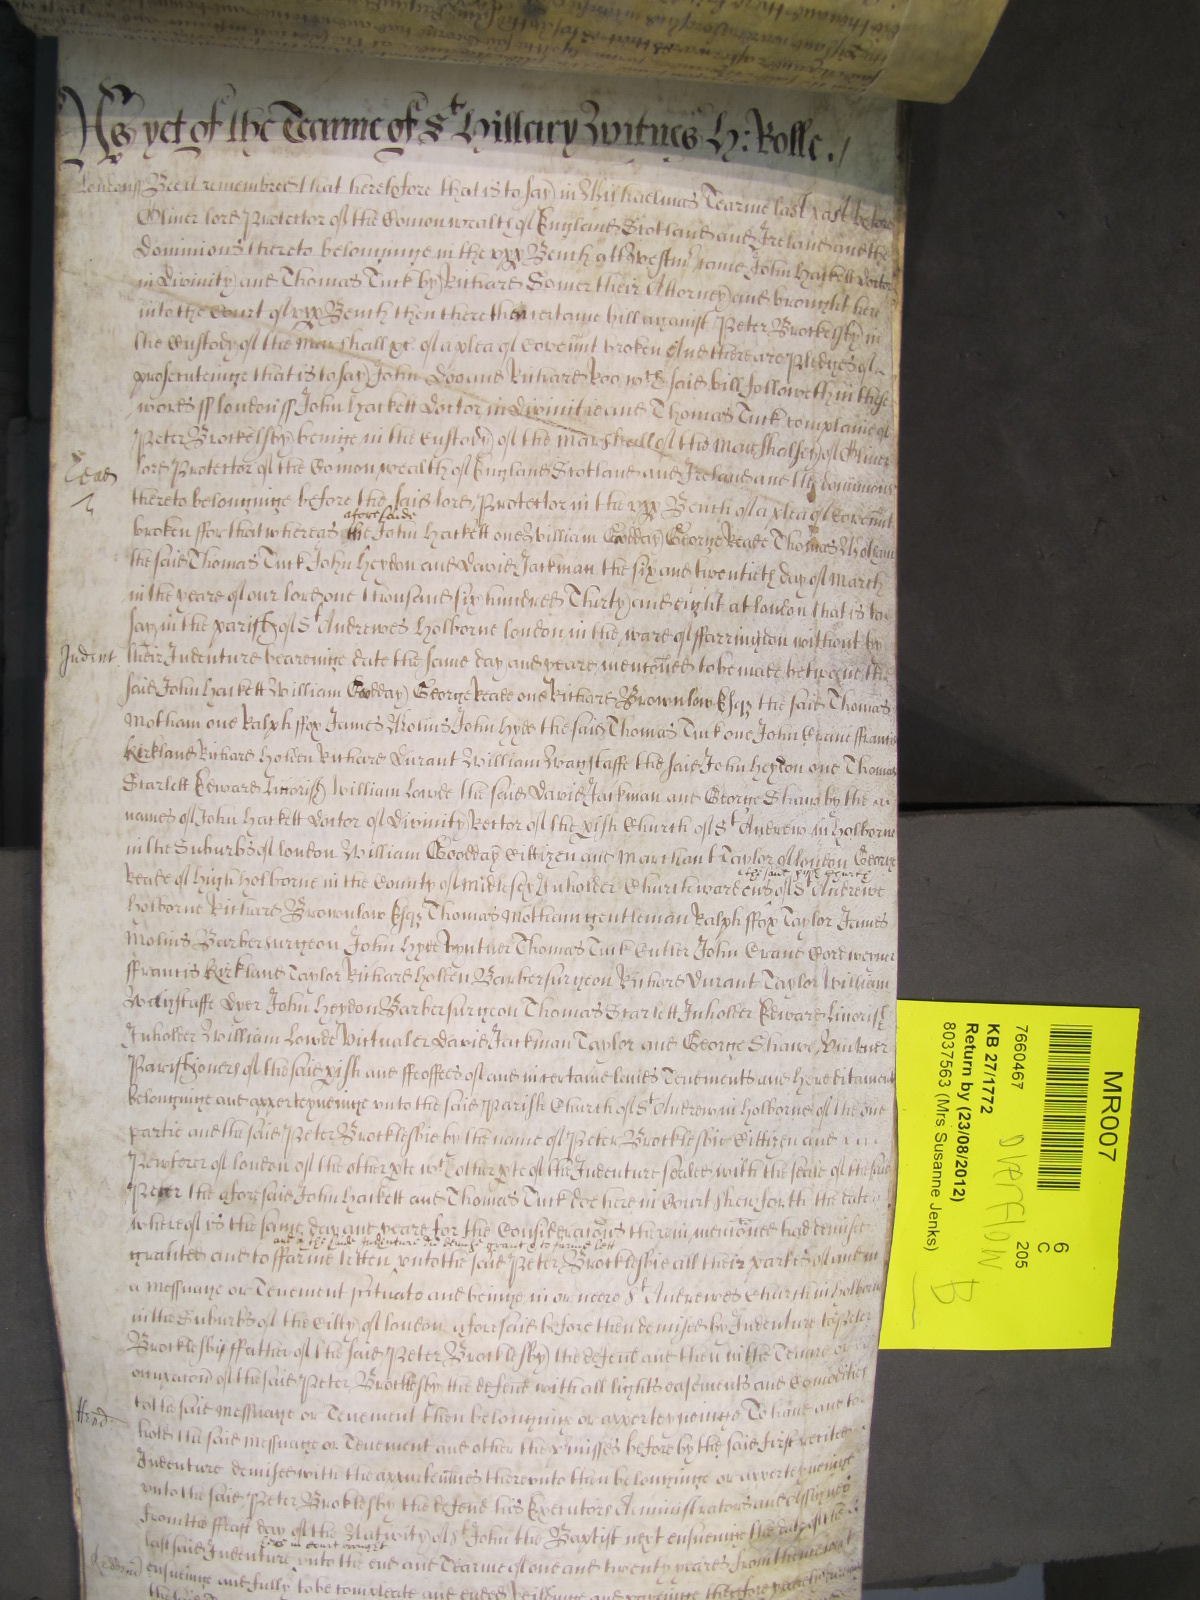 As yet of the Tearme of St Hillary Witnes H: Rolle.
London ss Bee it remembred that heretofore that is to say in Michaelmas Tearme last past before
Oliver lord Protector of the Comonwealth of England Scotland and Ireland and the
dominions thereto belonginge in the vpp Bench att Westmr came John Hackett doctor
in divinity and Thomas Tuck by Richard Somer their Attorney and brought here
into the Court of vpp Bench then there their certaine bill against Peter Brockelsby in
the Custody of the Marshall &c. of a plea of Covennt broken And there are Pledges of
prosecuteinge that is to say John Doo and Richard Roo wch said bill followeth in these
words ss london ss John Hackett doctor in divinitie and Thomas Tuck complaine of
Peter Brockelsby beinge in the Custody of the Marshall of the Marshalsey of Oliver
lord Protector of the Comonwealth of England Scotland and Ireland and the dominions
thereto belonginge before the said lord Protector in the vpp Bench of a plea of Covennt
broken ffor that whereas the aforesaide John Hackett one William Gooday George Reade Thomas Motham
the said Thomas Tuck John Heydon and David Jackman the six and twentieth day of March
in the yeare of our lord one thousand six hundred Thirty and eight at london that is to
say in the parish of St Andrewes Holborne london in the ward of ffarringdon without by
Indent their Indenture beareinge date the same day and yeare mentioned to be made betweene the
said John Hackett William Gooday George Reade one Richard Brownlow Esqz the said Thomas
Motham one Ralph ffox James Molins John Hyde the said Thomas Tuck one John Crane ffrancis
Kirkland Richard Holden Richard Durant William Wagstaffe the said John Heydon one Thomas
Scarlett Edward William Lowde the said David Jackman and George Shaw by the
names of John Hackett doctor of divinity Rector of the pish Church of St Andrew in Holborne
in the Suburbs of london William Goodday Cittizen and Marchant Taylor of london George
Reade of high Holborne in the County of Midlesex Inholder Churchwardens of the said pish Church St Andrewe
Holborne Richard Brownlow Esqz Thomas Motham gentleman Ralph ffox Taylor James
Molins Barbersurgeon John Hyde Vyntner Thomas Tuck Cutler John Crane Cordwener
ffrancis Kirkland Taylor Richard Holden Barbersurgeon Richard Durant Taylor William
Wagstaffe Dyer John Heydon Barbersurgeon Thomas Scarlett Inholder Edward
Inholder William Lowde Victualer David Jackman Taylor and George Shawe Vintner
Parishioners of the said pish and ffeoffees of and in certaine landes Tenements and Hereditaments
belonginge and apperteyneinge vnto the said Parish Church of St Andrew in Holborne of the one
partie and the said Peter Brocklesbie by the name of Peter Brocklesbie Cittizen and
Pewterer of london of the other pte wch other pte of the Indenture sealed with the seale of the said
Peter the aforesaid John Hackett and Thomas Tuck doe here in Court shew forth the date
whereof is the same day and yeare for the Consideracons therein mentioned had demised
graunted and to ffarme letten vnto the said Peter Brocklesbie all their partes of and in
a messuage or Tenement scituate and beinge in or neere St Andrewes Church in holborne
in the Suburbs of the Citty of london aforesaid before then demised by Indenture to Peter
Brocklesby ffather of the said Peter Brocklesby the defend and then in the Tenure or
occupacon of the said Peter Brocklesby the defend with all lights easements and Comodities
to the said messuage or Tenement then belonginge or apperteyneinge To have and to
hold the said messuage or Tenement and other the pmisses before by the said first recited
Indenture demised with the appurtennces therevnto then belonginge or apperteyneinge
vnto the said Peter Brocklesby the defend his Executors Administrators and Assignes
from the ffeast day of the Nativity of St John the Baptist next ensueinge the date of the
last said Indenture vnto the end and Tearme of one and twenty yeares from thence
ensueinge and fully to be compleate and ended
MR007
6
C
7660467
205
KB 27/1772
Return by (23/08/2012)
8037563 (Mrs Susanne Jenks)
OVERFLOW
B